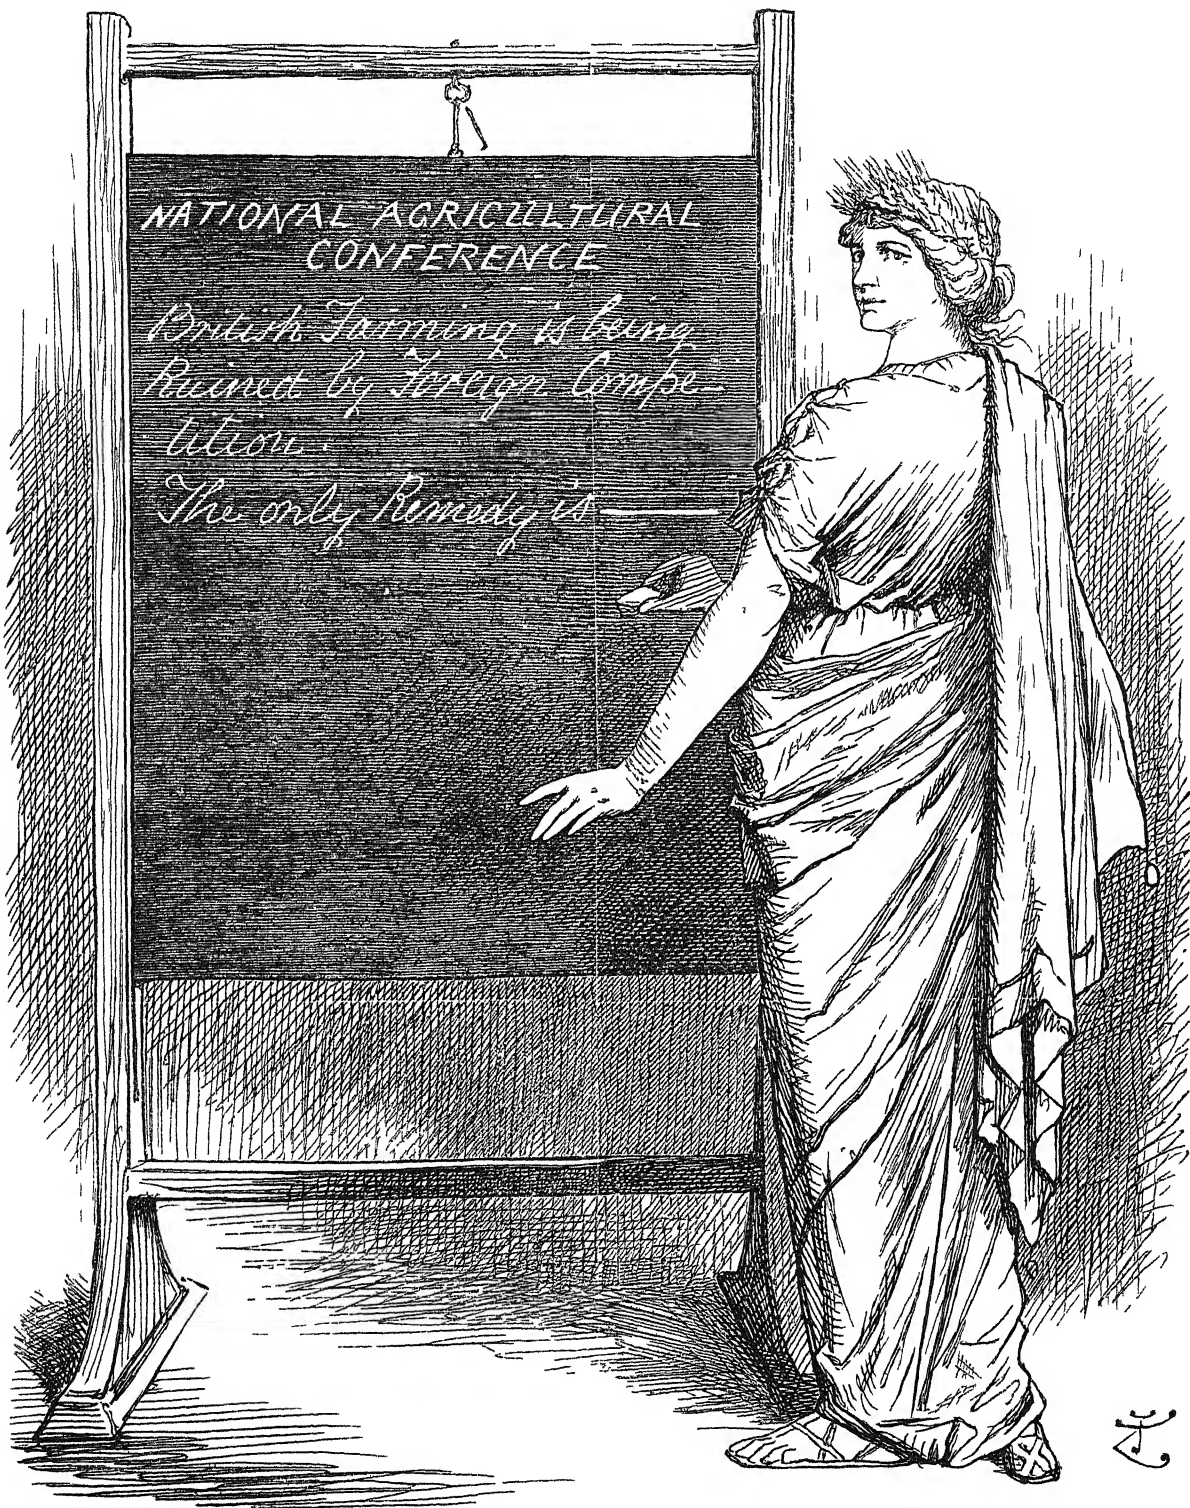 NATIONAL AGRICULTURAL
CONFERENCE
British Farming is being
Ruined by Foreign Compe-
tition.
The only Remedy is ———